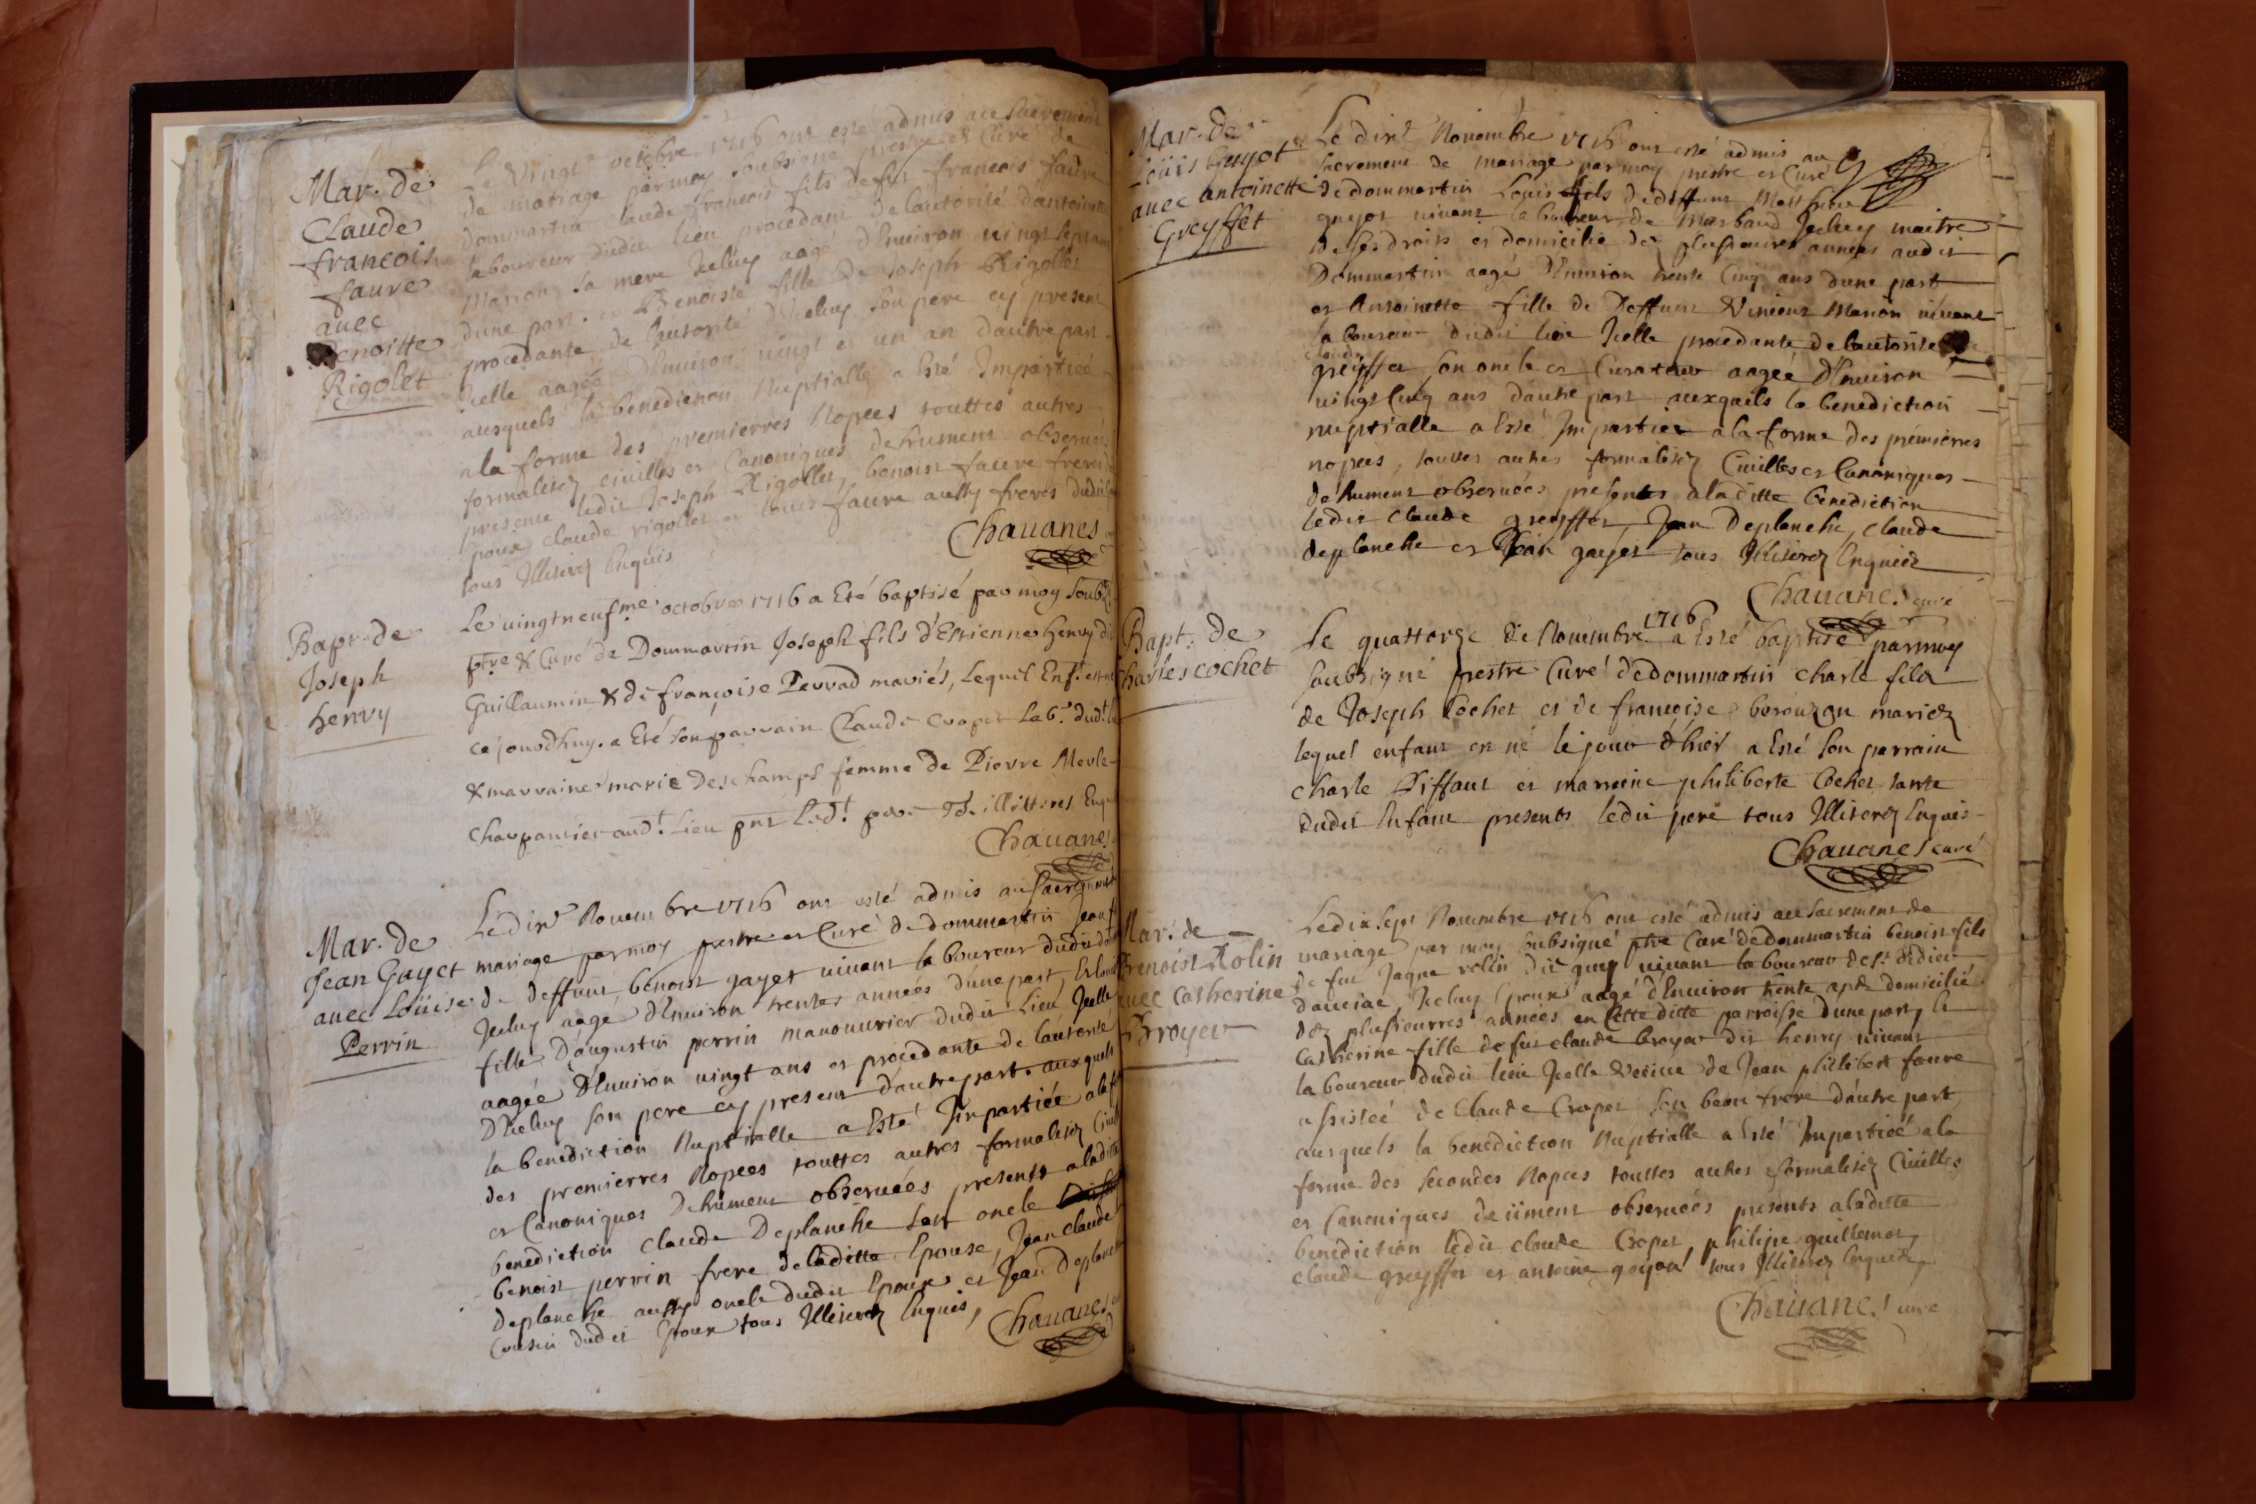 Mar. de
Claude
francois
faure
avec
Benoitte
Rigolet
Le Vingt octobre 1716 ont esté admis au sacrement
de mariage par moy soubsigné prestre et Curé de
dommartin claude francois fils de fut francois faure
laboureur dudit lieu procedant de lautorité dantoinette
Marion sa mere Jceluy aagé d'Environ vingt sept ans
dune part et Benoiste fille de Joseph Rigollet
procedante de lautorité d'Jceluy son pere cy present
Jcelle aagée d'Environ vingt et un an dautre part
ausquels la benediction Nuptialle a Esté Jmpartiée
a la forme des premierres Nopces touttes autres
formalitez civilles et Canoniques dehument observées
presence ledit Joseph Rigollet, benoist faure frere
poux claude rigollet et louis faure aussy freres dudit
tous Jlliterez Enquis
Chavanes
Bapt. de
Joseph
henry
Le vingt neufme octobre 1716 a Eté baptisé par moy soubs
ptre & Curé de Dommartin Joseph fils d'Estienne henry di
Guillaumin & de françoise Perrad mariés, Lequel Enft est né
ce jourdhuy. a Eté son parrain Claude Cropet Labr. dudt l
& marraine marie Deschamps femme de Pierre Merle
charpantier audt. Lieu pnt Ledt. pere Ts. illitterés Enq
Chavanes
Mar. de
Jean Gayet
avec Loüise
Perrin
Le dixe Novembre 1716 ont esté admis au sacrement
mariage par moy prestre et Curé de dommartin Jean f
de deffunt benoist gayet vivant laboureur dudit do
Jceluy aagé d'Environ trentes années d'une part, Et Loui
fille d'augustin perrin manouvrier dudit Lieu Jcelle
aagée d'Environ vingt ans et procedante de lautorité
D'Jceluy son pere cy present dautre part. auxquels
la benediction Nuptialle a Esté Jmpartiée a la f
des premierres Nopces touttes autres formalitez Civil
et Canoniques Dehument observées presents a la ditte
benediction claude Deplanche son oncle
benoist perrin frere de laditte Epouse, Jean claude
deplanche aussy oncle dudit Epoux et Jean Deplanch
Cousin dudit Epoux tous Jlliterez Enquis,
Chavanes
Mar. de
Loüis Guyot
avec antoinette
Greyffet
Le dixe Novembre 1716 ont esté admis au
sacrement de mariage par moy prestre et Curé
de dommartin Louis fils de deffunt Matthieu
guyot vivant laboureur de Marbaud Jceluy maitre
de ses droits et domicilié de plusieurres années audit
Dommartin aagé d'Environ trente Cinq ans dune part
et Antoinette fille de Deffunt Vinient Marion vivant
laboureur dudit lieu Jcelle procedante de lautorité de
claude
greyffet son oncle et Curateur aagée d'Environ
vingt Cinq ans dautre part auxquels la benediction
nuptialle a Esté Jmpartiez a la forme des premierres
nopces, toutes autres formalitez Civilles et Canoniques
dehument observées presents a la ditte benediction
ledit claude greyffet, Jean Deplanche, claude
deplanche et Jean gayet tous Jlliterez Enquiez
Chavanes curé
Bapt. de
Charles cochet
Le quattorze de Novembre 1716 a Esté baptisé par moy
soubsigné prestre Curé de dommartin charle fils
de Joseph Cochet et de francoise berouzon mariez
lequel enfant est né le jour d'hier a Esté son parrain
charle Diffant et marraine philiberte Cochet tante
dudit Enfant presents ledit pere tous Jlliterez Enquis
Chavanes curé
Mar. de
Benoist Rolin
avec Catherine
Broyer
Le dix sept Novembre 1716 ont esté admis au sacrement de
mariage par moy soubsigné ptre Curé de dommartin benoist fils
de fut Jaque rolin dit guy vivant laboureur de st. didier
daussiac, Jceluy Epoux aagé d'Environ trente ans domicilié
dez plusieurres années en Cette ditte parroisse d'une part, Et
Catherine fille de fut claude broyer dit henry vivant
laboureur dudit lieu Jcelle Vefve de Jean philibert faure
assistée de claude Cropet son beau frere d'autre part
ausquels la benediction Nuptialle a Esté Jmpartiée a la
forme des secondes Nopces touttes autres formalitez Civilles
et Canoniques deüment observées presents a laditte
benediction ledit claude Cropet, philipe guillemot,
claude greyffet et antoine goyon tous Jlliterez Enquis,
Chavanes curé